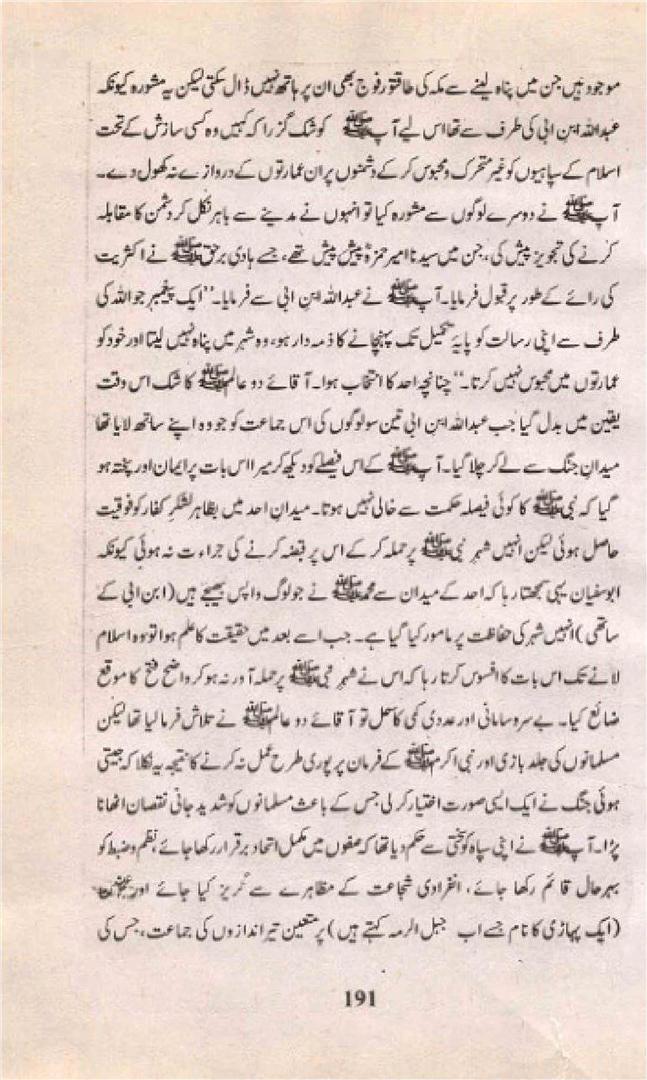 موجود ہیں جن میں پناہ لینے سے مکہ کی طاقتور فوج بھی ان پر ہاتھ نہیں ڈال سکتی لیکن یہ مشورہ کیونکہ
عبداللہ ابن ابی کی طرف سے تھا اس لیے آپ ﷺ کو شک گزرا کہ کہیں وہ کسی سازش کے تحت
اسلام کے سپاہیوں کو غیر متحرک و محبوس کر کے دشمنوں پر ان عمارتوں کے دروازے نہ کھول دے۔
آپ ﷺ نے دوسرے لوگوں سے مشورہ کیا تو انہوں نے مدینے سے باہر نکل کر دشمن کا مقابلہ
کرنے کی تجویز پیش کی، جن میں سیدنا امیر حمزہؓ پیش پیش تھے، جسے ہادی برحق ﷺ نے اکثریت
کی رائے کے طور پر قبول فرمایا۔ آپ ﷺ نے عبداللہ ابن ابی سے فرمایا۔ ’’ایک پیغمبر جو اللہ کی
طرف سے اپنی رسالت کو پایۂ تکمیل تک پہنچانے کا ذمہ دار ہو، وہ شہر میں پناہ نہیں لیتا اور خود کو
عمارتوں میں محبوس نہیں کرتا۔‘‘ چنانچہ احد کا انتخاب ہوا۔ آقائے دو عالم ﷺ کا شک اس وقت
یقین میں بدل گیا جب عبداللہ ابن ابی تین سو لوگوں کی اس جماعت کو جو وہ اپنے ساتھ لایا تھا
میدان جنگ سے لے کر چلا گیا۔ آپ ﷺ کے اس فیصلے کو دیکھ کر میرا اس بات پر ایمان اور پختہ ہو
گیا کہ نبی ﷺ کا کوئی فیصلہ حکمت سے خالی نہیں ہوتا۔ میدان احد میں بظاہر لشکرِ کفار کو فوقیت
حاصل ہوئی لیکن انہیں شہرِ نبی ﷺ پر حملہ کر کے اس پر قبضہ کرنے کی جراءت نہ ہوئی کیونکہ
ابوسفیان یہی سمجھتا رہا کہ احد کے میدان سے محمد ﷺ نے جو لوگ واپس بھیجے ہیں (ابن ابی کے
ساتھی) انہیں شہر کی حفاظت پر مامور کیا گیا ہے۔ جب اسے بعد میں حقیقت کا علم ہوا تو وہ اسلام
لانے تک اس بات کا افسوس کرتا رہا کہ اس نے شہرِ نبی ﷺ پر حملہ آور نہ ہو کر واضح فتح کا موقع
ضائع کیا۔ بے سروسامانی اور عددی کمی کا حل تو آقائے دو عالم ﷺ نے تلاش فرما لیا تھا لیکن
مسلمانوں کی جلد بازی اور نبی اکرم ﷺ کے فرمان پر پوری طرح عمل نہ کرنے کا نتیجہ یہ نکلا کہ جیتی
ہوئی جنگ نے ایک ایسی صورت اختیار کر لی جس کے باعث مسلمانوں کو شدید جانی نقصان اٹھانا
پڑا۔ آپ ﷺ نے اپنی سپاہ کو سختی سے حکم دیا تھا کہ صفوں میں مکمل اتحاد برقرار رکھا جائے، نظم و ضبط کو
بہرحال قائم رکھا جائے، انفرادی شجاعت کے مظاہرے سے گریز کیا جائے اور
(ایک پہاڑی کا نام جسے اب جبل الرمہ کہتے ہیں) پر متعین تیر اندازوں کی جماعت، جس کی
191